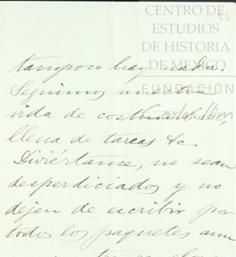 CENTRO DE
ESTUDIOS
DE HISTORIA
DE MEXICO
FUNDACIÓN
tampoco hay nada.
Seguimos nuestra
vida de costumbre,
llena de tareas &c.
Diviértanse, no sean
desperdiciados y no
dejen de escribir por
todos los paquetes aun